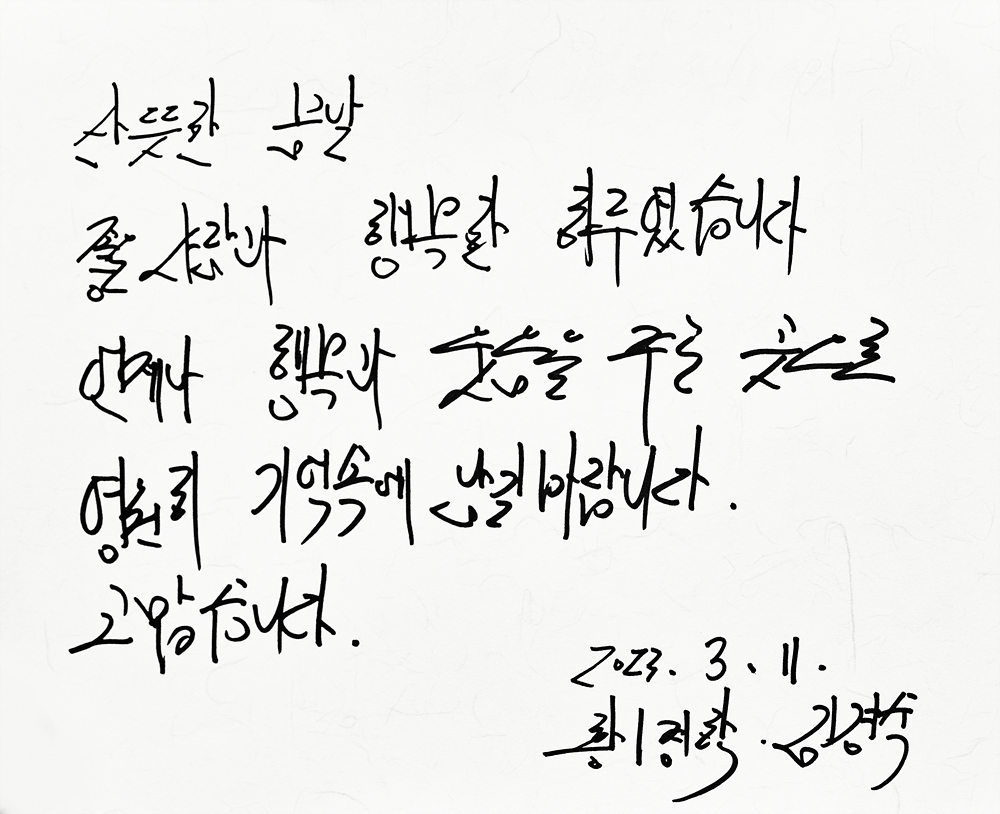 산뜻한 금발
좋은 사람과 행복한 하루였습니다
언제나 행복과 웃음을 주는 곳으로
영원히 기억속에 남길 바랍니다.
고맙습니다.
2023. 3. 11.
김경숙